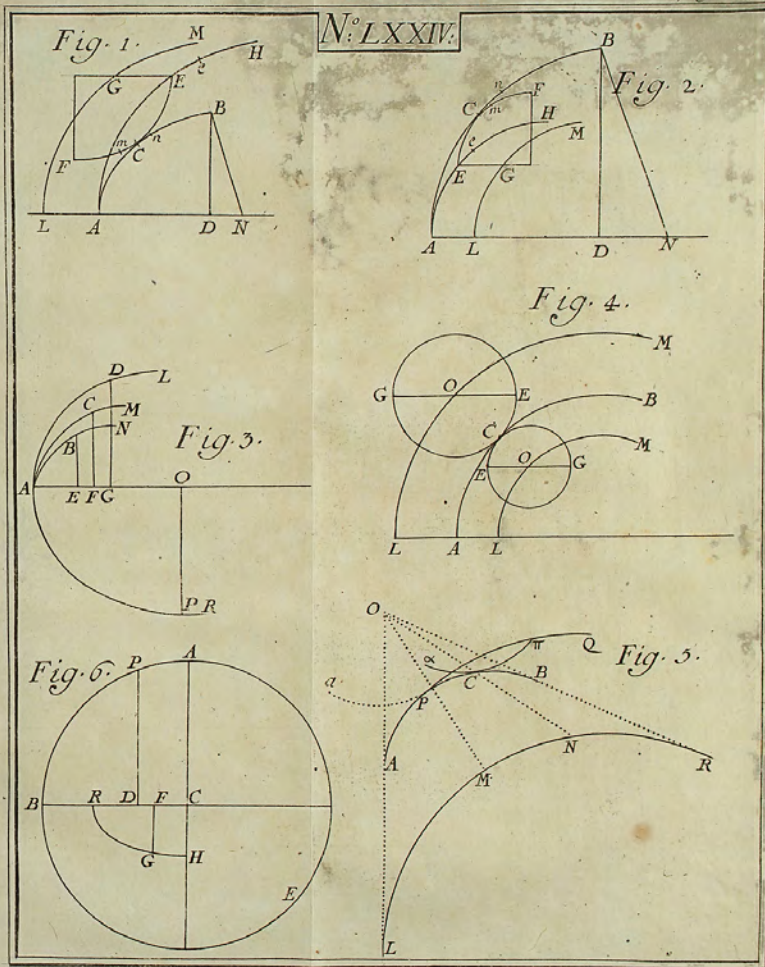 N.º LXXIV.
Fig. 1.
M
H
G
e
E
B
m
n
C
F
L A D N
Fig. 2.
B
n
F
C
m
H
M
e
E
G
A L D N
Fig. 3.
D
L
C
M
N
B
A
E F G
O
P R
Fig. 4.
M
G O E
B
C
M
E O G
L A L
Fig. 5.
O
π
Q
α
a
C
B
P
A
N
M
R
L
Fig. 6.
A
P
B R D F C
G H
E